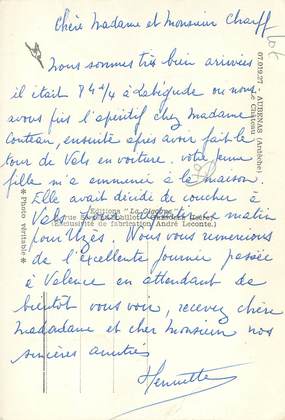 Chère Madame et Monsieur Charff
Nous sommes très bien arrivées
il était 8h 1/4 à Labégude ou nous
avons pris l'apéritif chez Madame
Couteau, ensuite après avoir fait le
tour de Vals en voiture. votre jeune
fille m'a emmenée à la maison.
Elle avait décidé de coucher à
Vals
matin
pour Uzès. Nous vous remercions
de l'Excellente journée passée
à Valence en attendant de
bientôt vous voir, recevez chère
Madadame et cher Monsieur nos
sincères amitiés
Henriette
07.019.27 - AUBENAS (Ardèche)
Le Château
Editions "La Cigogne"
(Exclusivité de fabrication André Leconte.)
* Photo véritable *